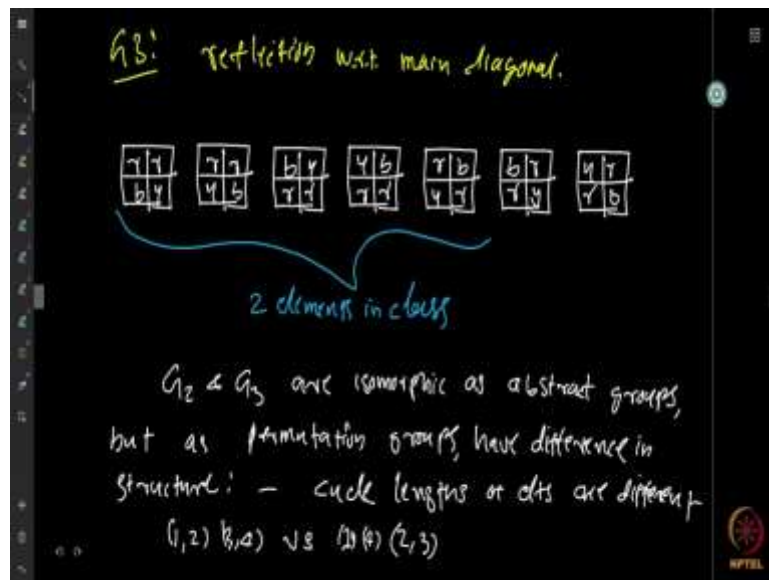 G3: reflection w.r.t. main diagonal.
r r r r b y y b r b b r y r
b y y b r r r r y r r y r b
2 elements in class
G2 & G3 are isomorphic as abstract groups,
but as permutation groups, have difference in
structure: - cycle lengths of elts are different
(1,2) (3,4) vs (1) (4) (2,3)
NPTEL